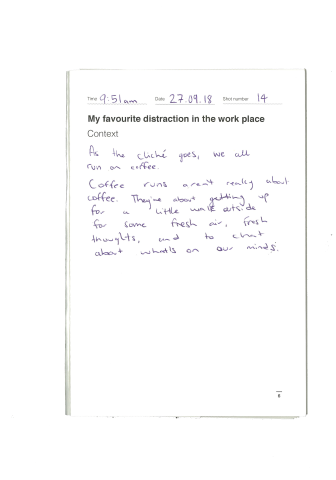 Time 9:51am Date 27.09.18 Shot number 14
My favourite distraction in the work place
Context
As the cliché goes, we all
run on coffee.
Coffee runs aren't really about
coffee. They're about getting up
for a little walk outside
for some fresh air, fresh
thoughts, and to chat
about what's on our minds.